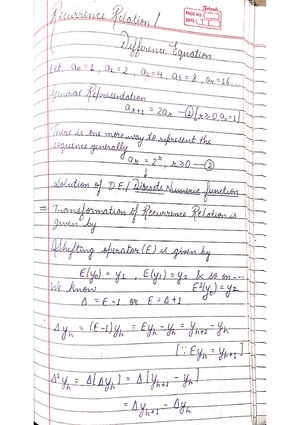 PAGE NO.
DATE
Recurrence Relation/
Difference Equation
Let, a₀ = 1, a₁ = 2, a₂ = 4, a₃ = 8, a₄ = 16...
General Representation
aᵣ₊₁ = 2aᵣ —① [r ≥ 0, a₀ = 1]
There is one more way to represent the
sequence generally
aᵣ = 2ʳ, r ≥ 0 —②
↓
Solution of D.E./Discrete Numeric function
⇒ Transformation of Recurrence Relation is
given by
Shifting operator (E) is given by
E(y₀) = y₁, E(y₁) = y₂ & so on---
We know E²(y₀) = y₂
Δ = E-1 or E = Δ+1
Δyₕ = (E-1)yₕ = Eyₕ - yₕ = yₕ₊₁ - yₕ
[∵ Eyₕ = yₕ₊₁]
Δ²yₕ = Δ[Δyₕ] = Δ[yₕ₊₁ - yₕ]
= Δyₕ₊₁ - Δyₕ